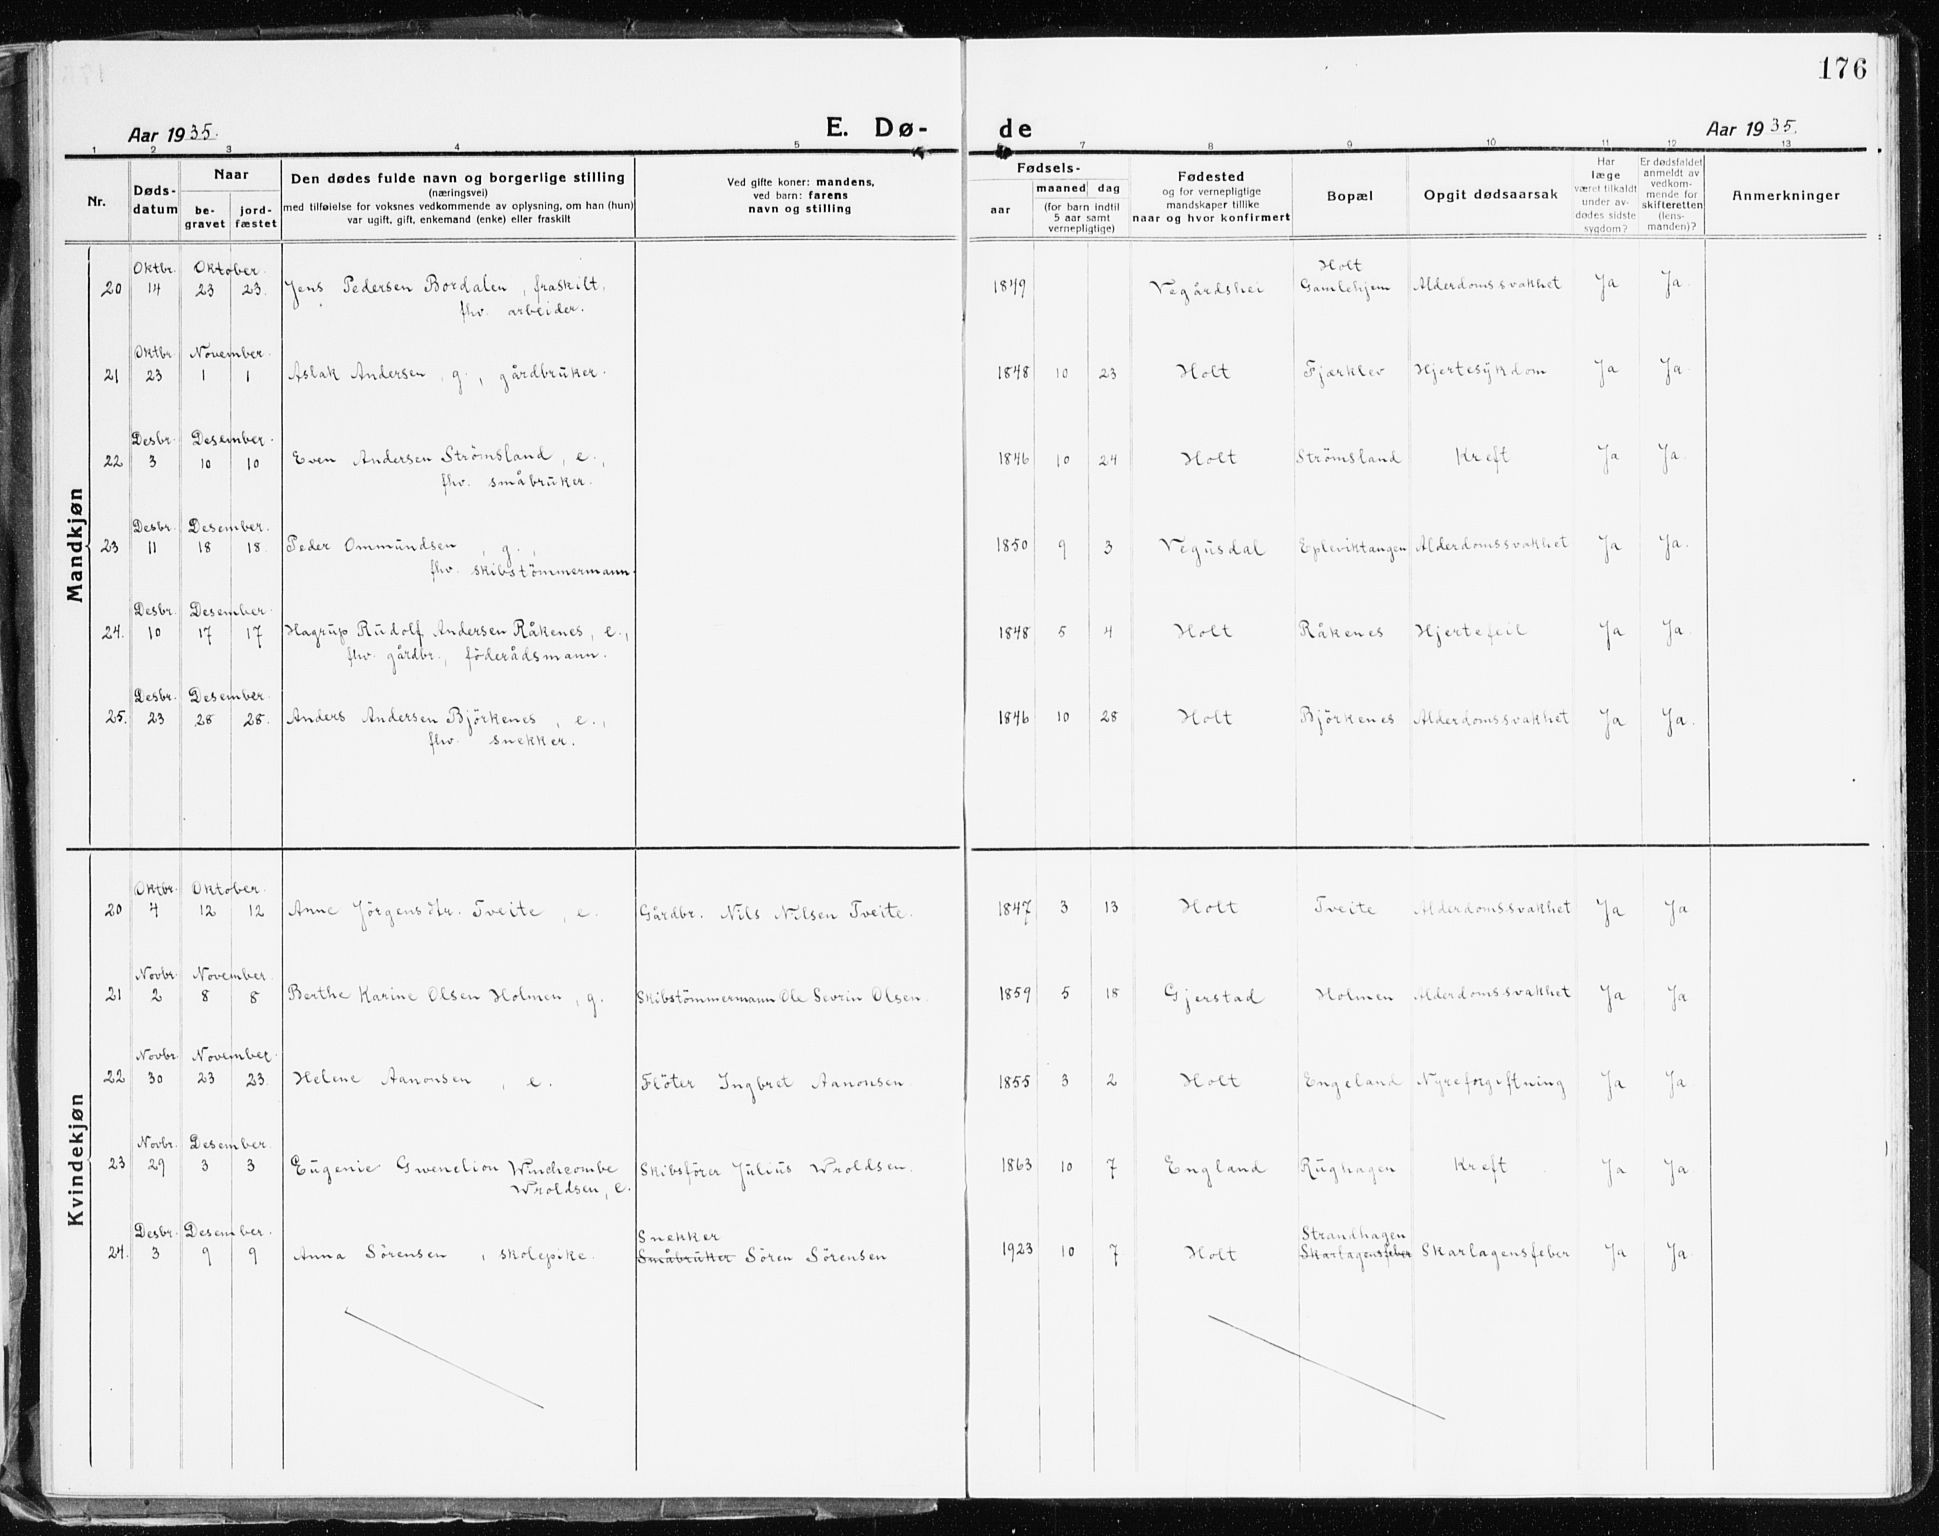 176
Aar 1935. E. Dø- de Aar 1935.
1 2 3 4 5 7 8 9 10 11 12 13
Nr. Døds-datum Naar be-gravet jord-fæstet Den dødes fulde navn og borgerlige stilling (næringsvei) med tilføielse for voksnes vedkommende av oplysning, om han (hun) var ugift, gift, enkemand (enke) eller fraskilt Ved gifte koner: mandens, ved barn: farens navn og stilling Fødsels- aar maaned dag (for barn indtil 5 aar samt vernepligtige) Fødested og for vernepligtige mandskaper tillike naar og hvor konfirmert Bopæl Opgit dødsaarsak Har læge været tilkaldt under av-dødes sidste sygdom? Er dødsfaldet anmeldt av vedkom-mende for skifteretten (lens-manden)? Anmerkninger
Mandkjøn
Oktbr. Oktober. Holt
20 14 23 23. Jens Pedersen Bordalen, fraskilt, 1849 Vegårdshei Gamlehjem Alderdomssvakhet Ja Ja.
fhv. arbeider.
Oktbr. November.
21 23 1 1 Aslak Andersen, g., gårdbruker. 1848 10 23 Holt Fjærklev Hjertesykdom Ja Ja.
Desbr. Desember.
22 3 10 10 Even Andersen Strömsland, e., 1846 10 24 Holt Strömsland Kreft Ja Ja.
fhv. småbruker.
Desbr. Desember.
23 11 18 18. Peder Ommundsen, g., 1850 9 3 Vegusdal Epleviktangen Alderdomssvakhet Ja Ja.
fhv. skibstömmermann.
Desbr. Desember.
24. 10 17 17 Hagrup Rudolf Andersen Råkenes, e., 1848 5 4 Holt Råkenes Hjertefeil Ja Ja.
fhv. gårdbr., föderådsmann.
Desbr. Desember.
25. 23 28 28. Anders Andersen Björkenes, e., 1846 10 28 Holt Björkenes Alderdomssvakhet Ja Ja.
fhv. snekker.
Kvindekjøn
Oktbr. Oktober.
20 4 12 12 Anne Jörgensdtr. Tveite, e. Gårdbr. Nils Nilsen Tveite. 1847 3 13 Holt Tveite Alderdomssvakhet Ja Ja
Novbr. November.
21 2 8 8 Berthe Karine Olsen Holmen, g. Skibstömmermann Ole Sevrin Olsen. 1859 5 18 Gjerstad Holmen Alderdomssvakhet Ja Ja
Novbr. November.
22 30 23 23. Helene Aanonsen, e. Flöter Ingbret Aanonsen. 1855 3 2 Holt Engeland Nyreforgiftning Ja Ja.
Novbr. Desember.
23 29 3 3 Eugenie Gwenelion Winchcombe Skibsförer Julius Wroldsen. 1863 10 7 England Rughagen Kreft Ja Ja.
Wroldsen, e.
Desbr. Desember. Snekker Strandhagen
24. 3 9 9 Anna Sörensen, skolepike. Småbruker Sören Sörensen 1923 10 7 Holt Skarlagensfeber Skarlagensfeber Ja Ja.